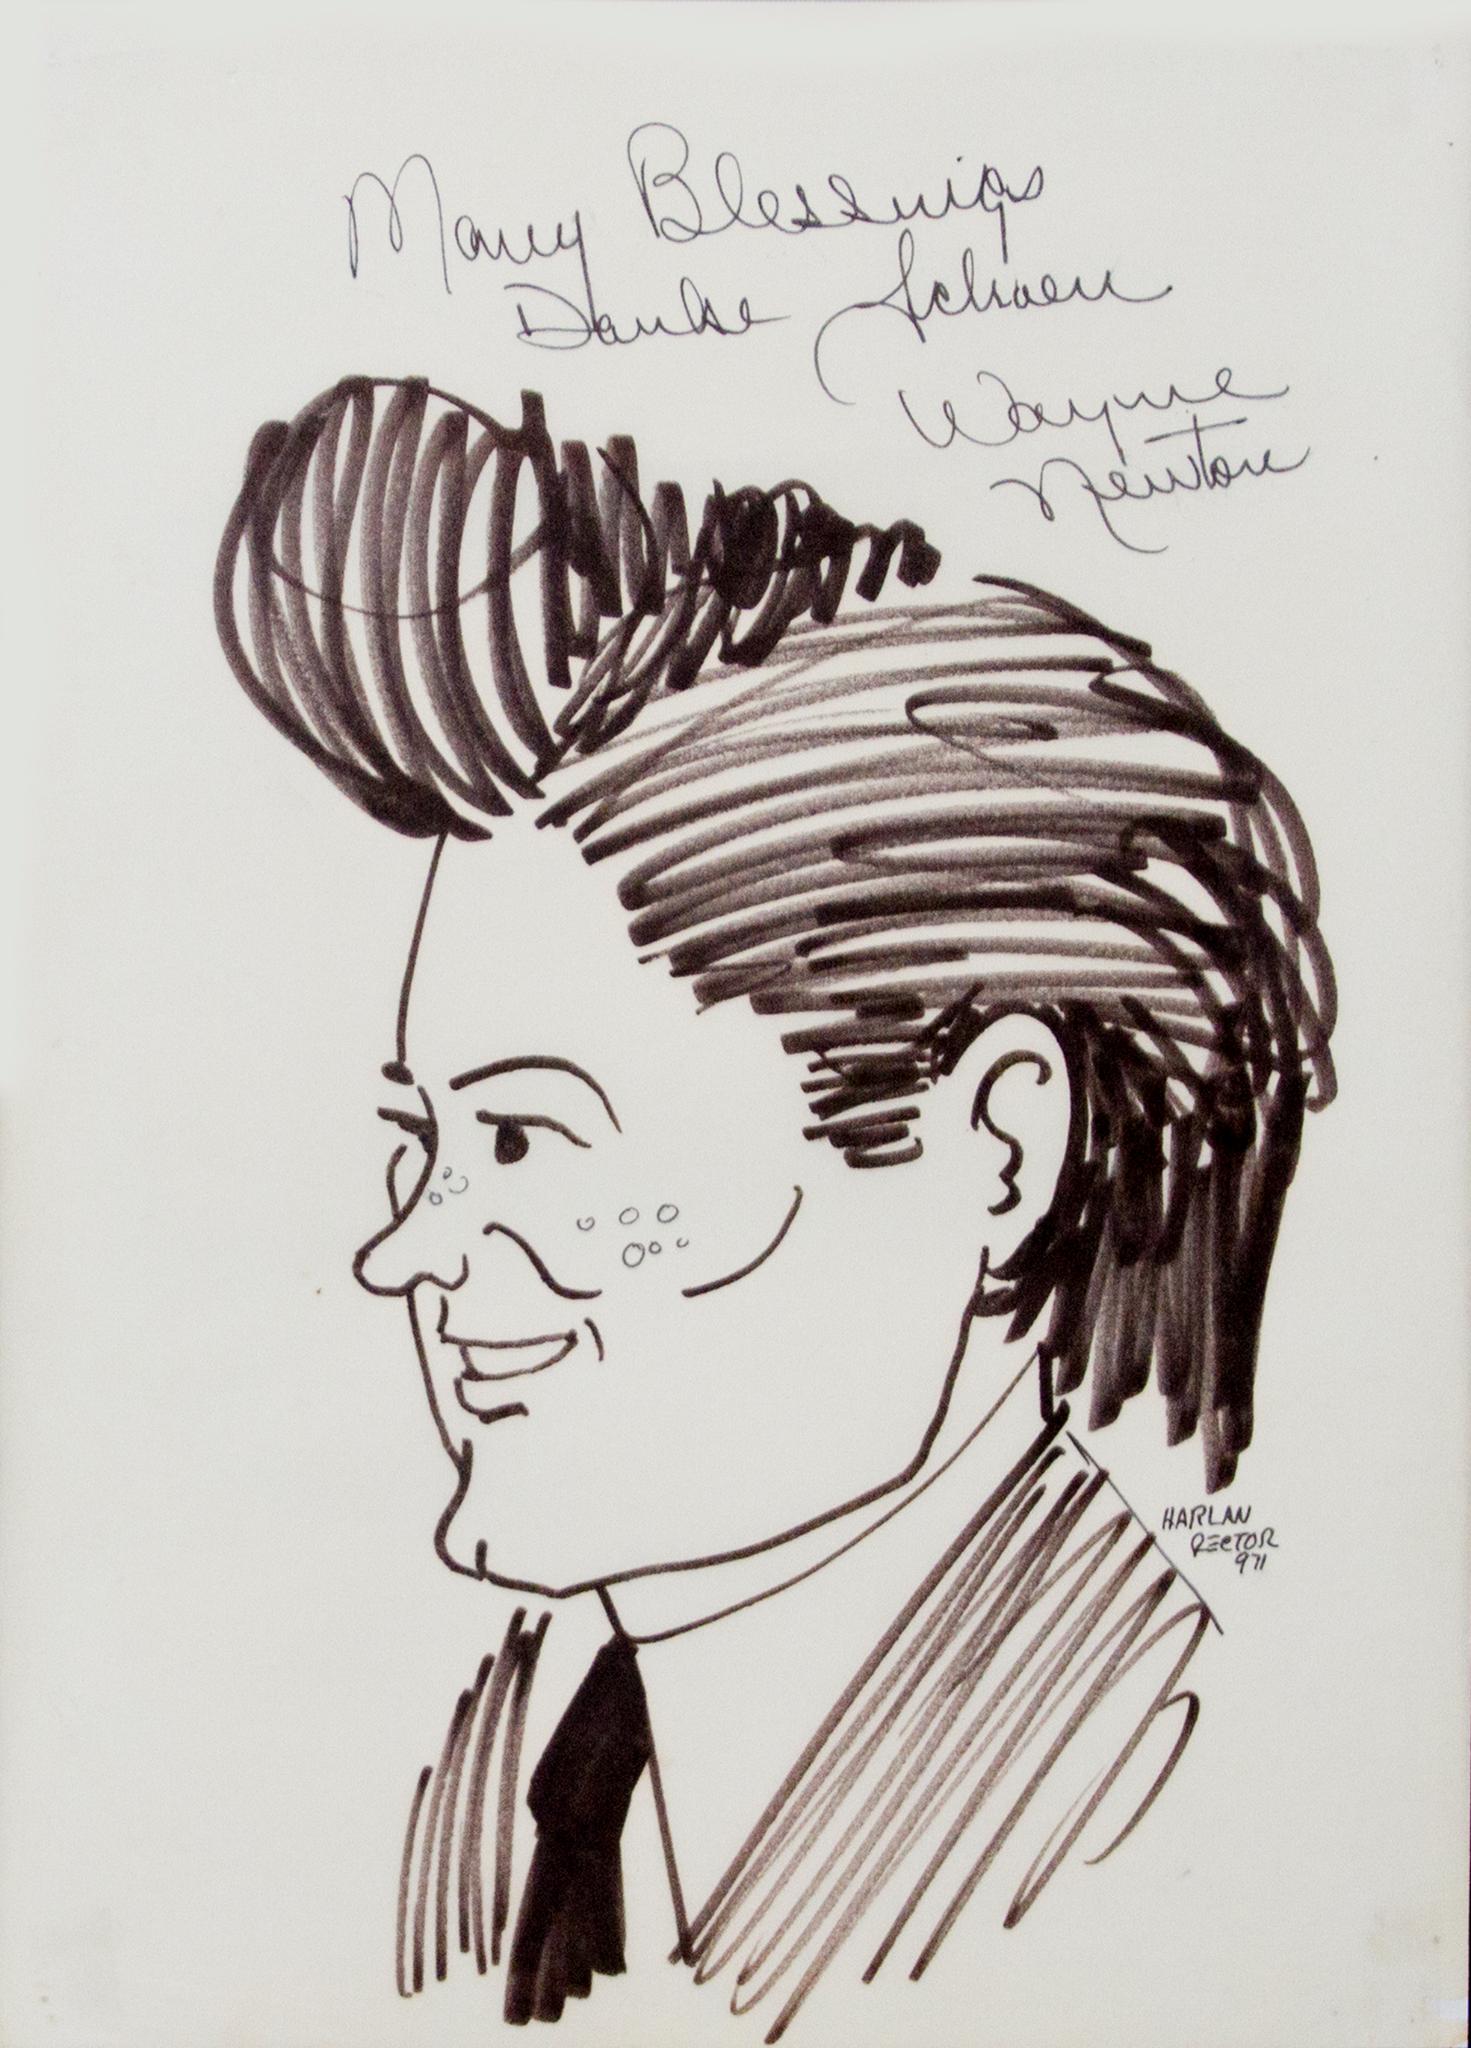 Many Blessings
Danke Schoen
Wayne
Newton
HARLAN
RECTOR
971